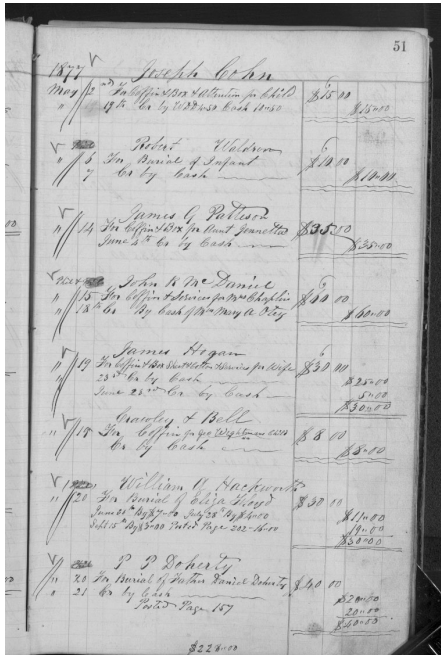 51
1877 Joseph Cohn
May 2nd For Coffin & Box & Attention for Child $15 00
" 19th Cr by Cash 10=50 $15=00
Robert Waldrew
" 6 For Burial of Infant $10 00
7 Cr by Cash $10=00
James G Patteson
" 14 For Coffin & Box for Aunt $35 00
June 4th Cr by Cash $35=00
John R McDaniel
" 15 For Coffin & Services for Mrs Chaplin $60 00
" 18th Cr By Cash of Mrs Mary A Otey $60=00
James Hogan
" 19 For Coffin & Box & Services for Wife $30 00
23rd Cr by Cash $25=00
June 23rd Cr by Cash 5=00
$30=00
Crawley & Bell
" 19 For Coffin for Geo Wightman $8 00
Cr by Cash $8=00
William R Hackworth
" 20 For Burial of Eliza Floyd $30 00
June 21st By $7=00 July 28th By $4=00 $11=00
Sept 15th By $3=00 Posted Page 202=16=00 19=00
$30=00
P P Doherty
" 20 For Burial of Father Daniel Doherty $40 00
" 21 Cr by Cash $20=00
Posted Page 157 20=00
$40=00
$228=00